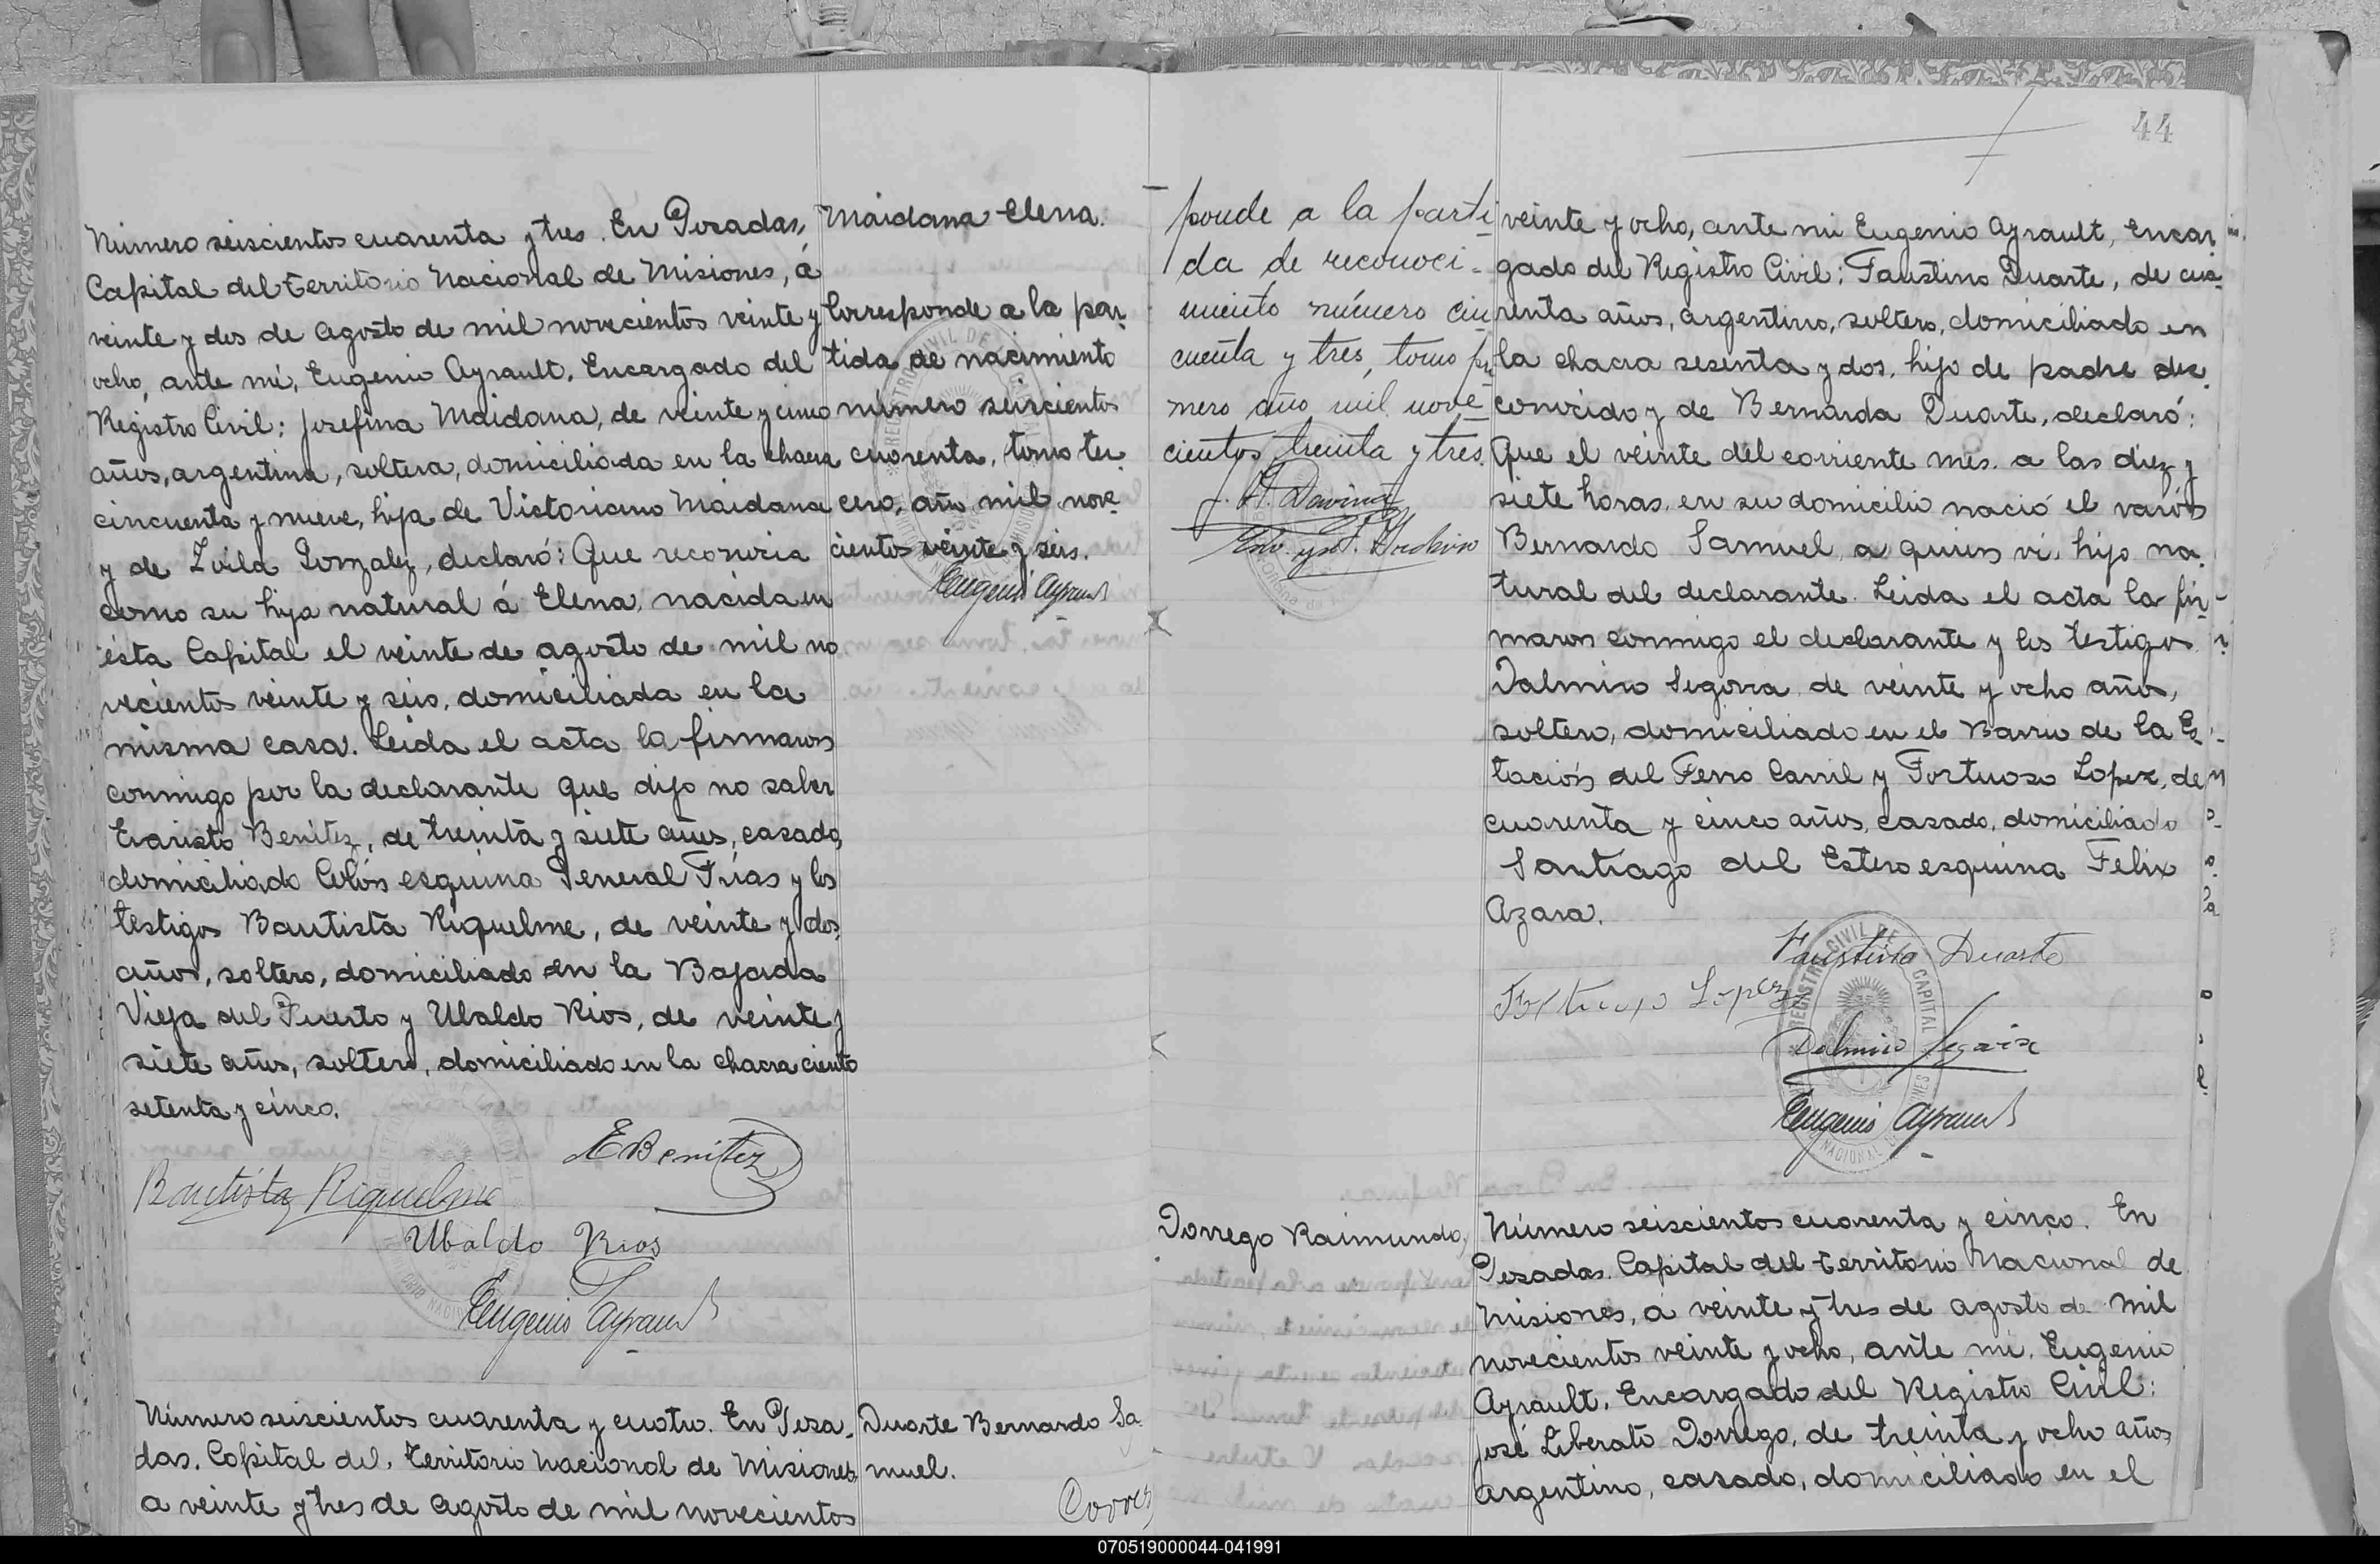 Número seiscientos cuarenta y tres. En Posadas,
Capital del territorio Nacional de Misiones, á
veinte y dos de agosto de mil novecientos veinte y
ocho, ante mí, Eugenio Ayrault, Encargado del
Registro Civil: Josefina Maidana, de veinte y cinco
años, argentina, soltera, domiciliada en la chacra
cincuenta y nueve, hija de Victoriano Maidana
y de Zoila Gonzalez, declaró: Que reconocia
como su hija natural á Elena, nacida en
ésta Capital el veinte de agosto de mil no
vecientos veinte y seis, domiciliada en la
misma casa. Leida el acta la firmaron
conmigo por la declarante que dijo no saber
Evaristo Benítez, de treinta y siete años, casado,
domiciliado Colón esquina General Frias y los
testigos Bautista Riquelme, de veinte y dos
años, soltero, domiciliado en la Bajada
Vieja del Puerto y Ubaldo Rios, de veinte y
siete años, soltero, domiciliado en la chacra ciento
setenta y cinco.
E Benitez
Bautista Riquelme
Ubaldo Rios
Eugenio Ayrault
Maidana Elena.
Corresponde a la par
tida de nacimiento
número seiscientos
cuarenta, tomo ter
cero, año mil nove
cientos veinte y seis.
Eugenio Ayrault
Número seiscientos cuarenta y cuatro. En Posa
das. Capital del, territorio Nacional de Misiones
a veinte y tres de agosto de mil novecientos
Duarte Bernardo Sa
muel.
Corres
44
ponde a la parti
da de reconoci-
miento número cin
cuenta y tres, tomo pri
mero año mil nove
cientos treinta y tres.
veinte y ocho, ante mi Eugenio Ayrault, Encar
gado del Registro Civil: Faustino Duarte, de cua
renta años, argentino, soltero, domiciliado en
la chacra sesenta y dos, hijo de padre des
conocido y de Bernarda Duarte, declaró:
Que el veinte del corriente mes. a las diez y
siete horas, en su domicilio nació el varón
Bernardo Samuel, a quien vi, hijo na
tural del declarante. Leida el acta la fir
maron conmigo el declarante y los testigos
Dalmiro Segovia de veinte y ocho años,
soltero, domiciliado en el Barrio de la Es
tación del Ferro Carril y Fortuoso Lopez, de
cuarenta y cinco años, casado, domiciliado
Santiago del Estero esquina Felix
Azara.
Faustino Duarte
Lopez
Dalmiro Segovia
Eugenio Ayrault
Dorrego Raimundo,
Número seiscientos cuarenta y cinco. En
Posadas. Capital del territorio Nacional de
Misiones, á veinte y tres de agosto de mil
novecientos veinte y ocho, ante mi, Eugenio
Ayrault, Encargado del Registro Civil:
José Liberato Dorrego, de treinta y ocho años
argentino, casado, domiciliado en el
070519000044-041991